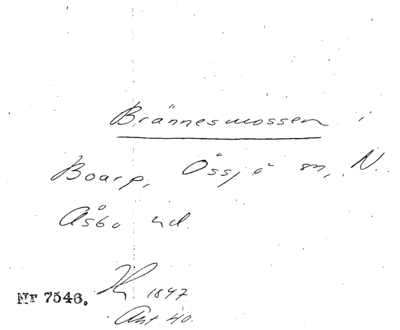 Brännesmossen i
Boarp, Össjö sn, N.
Åsbo hd.
Nr 7546. 1847
Ant 40.